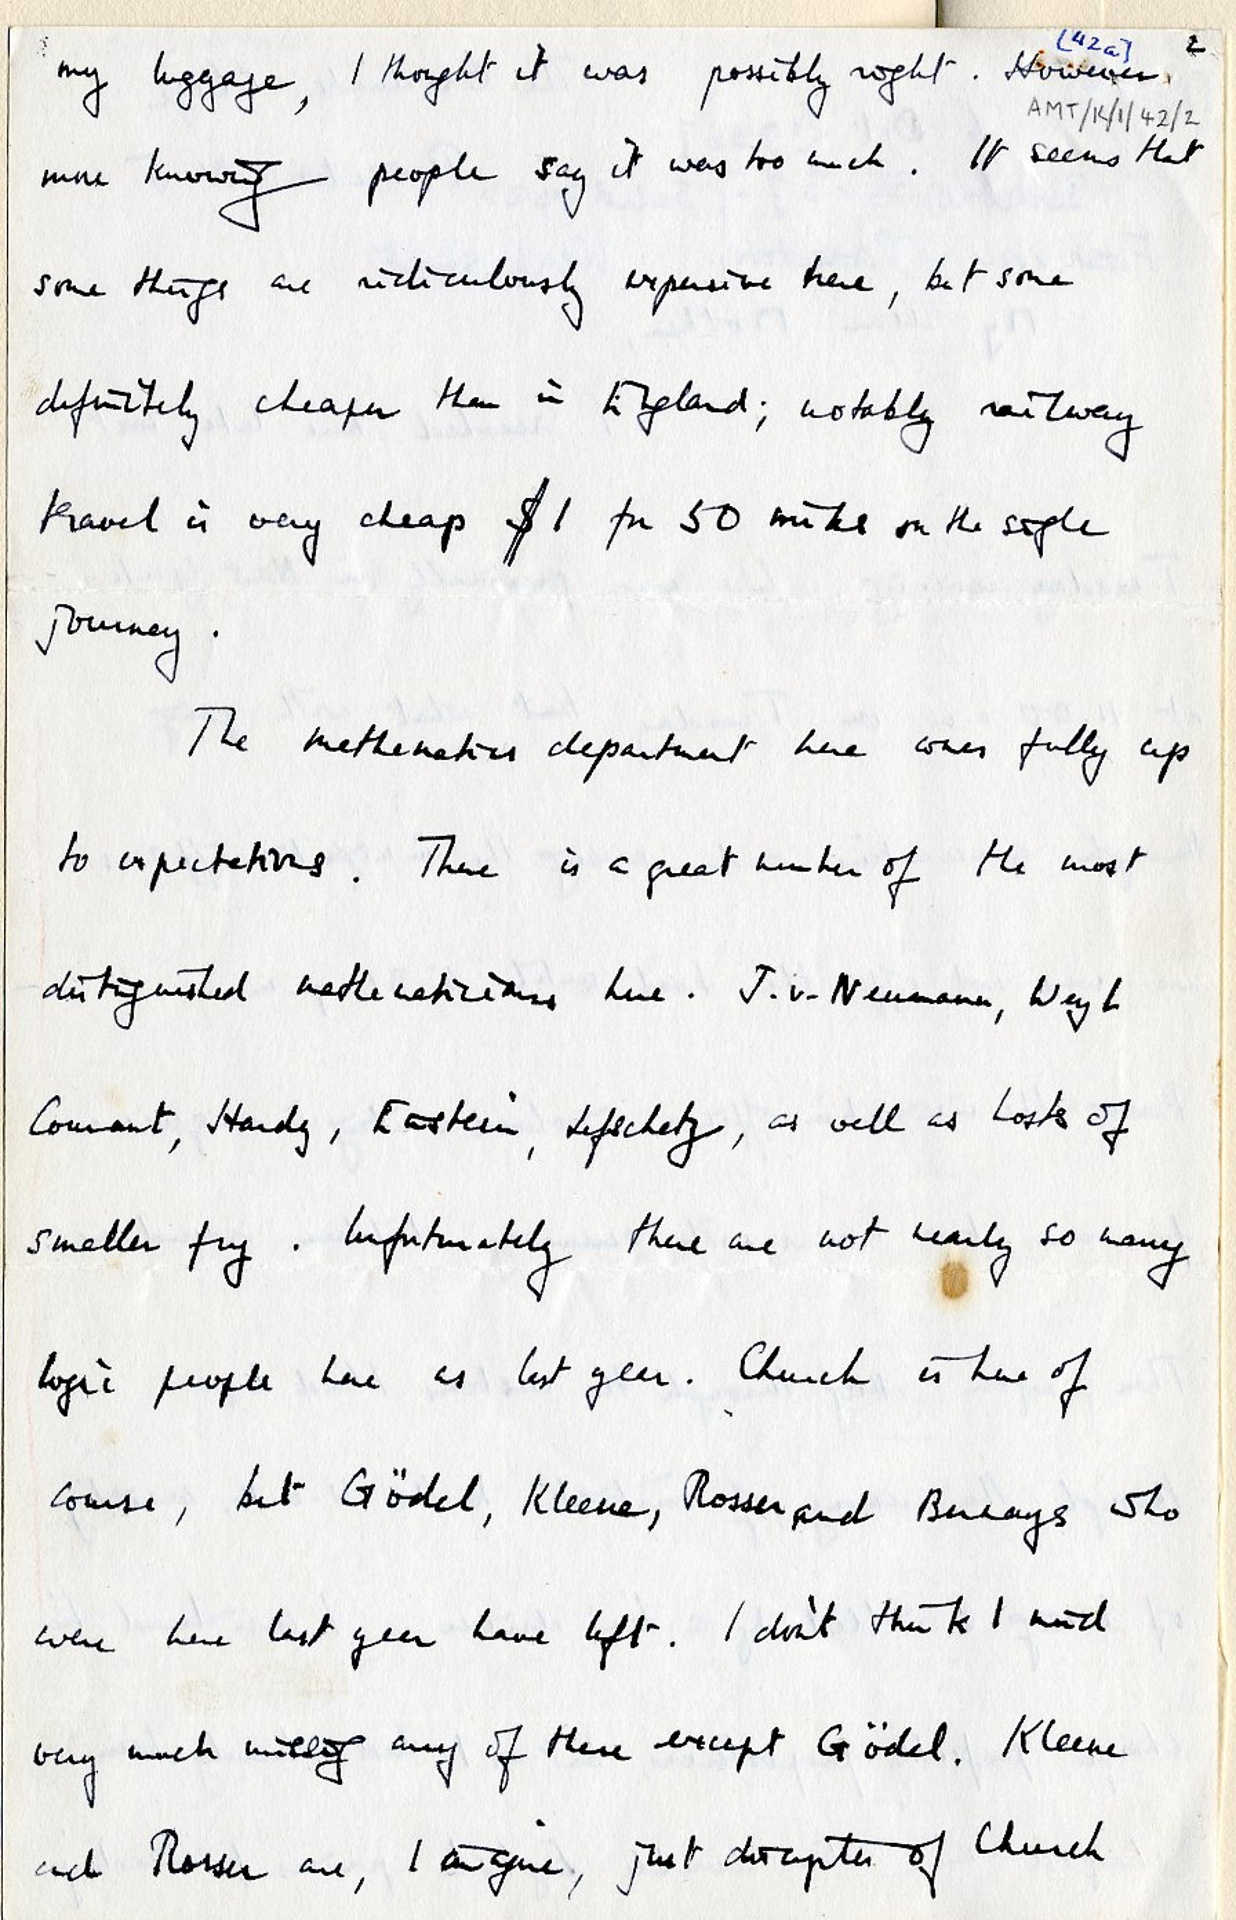 [42a] 2
my luggage, I thought it was possibly right. However
AMT/K/1/42/2
more knowing people say it was too much. It seems that
some things are ridiculously expensive here, but some
definitely cheaper than in England; notably railway
travel is very cheap $1 for 50 miles on the single
journey.
The mathematics department here comes fully up
to expectations. There is a great number of the most
distinguished mathematicians here. J.v-Neumann, Weyl
Courant, Hardy, Einstein, Lefschetz, as well as hosts of
smaller fry. Unfortunately there are not nearly so many
logic people here as last year. Church is here of
course, but Gödel, Kleene, Rosser and Bernays who
were here last year have left. I don't think I mind
very much missing any of these except Gödel. Kleene
and Rosser are, I imagine, just disciples of Church